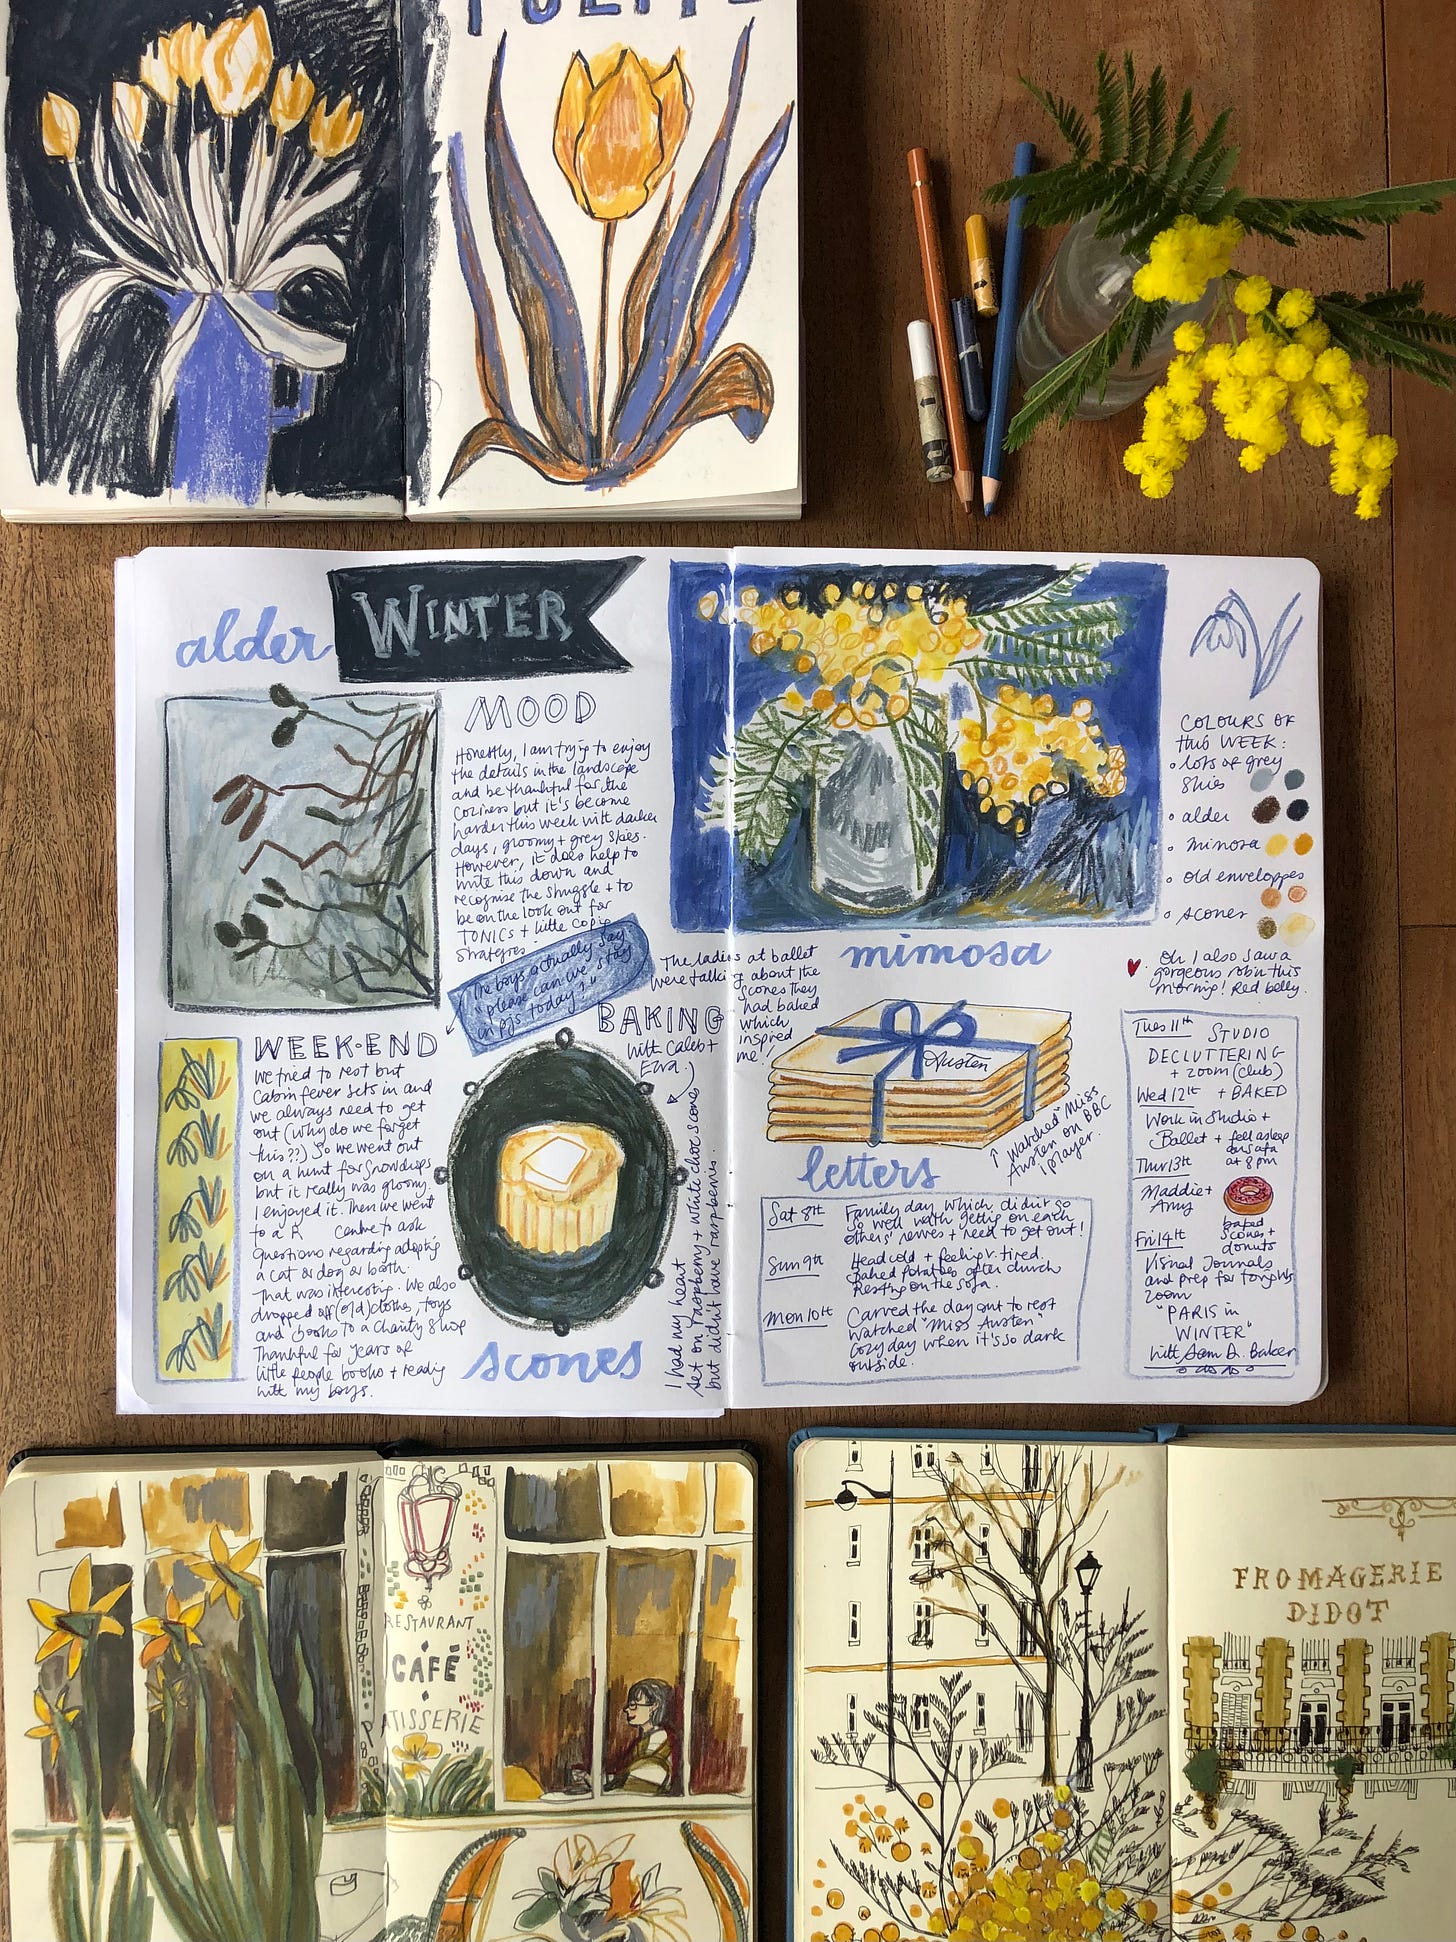 alder
WINTER
MOOD
Honestly, I am trying to enjoy
the details in the landscape
and be thankful for the
coziness but it's become
harder this week with darker
days, gloomy + grey skies.
However, it does help to
write this down and
recognise the struggle + to
be on the look out for
TONICS + little coping
strategies.
The boys actually say
"please can we stay
in PJs today?"
WEEK-END
We tried to rest but
Cabin fever sets in and
we always need to get
out (why do we forget
this??) So we went out
on a hunt for snowdrops
but it really was gloomy.
I enjoyed it. Then we went
to a R centre to ask
questions regarding adopting
a cat or dog or both.
That was interesting. We also
dropped off (old) clothes, toys
and books to a Charity Shop
Thankful for years of
little people books + reading
with my boys.
BAKING
with Caleb +
Ezra.
scones
I had my heart
set on raspberry + white choc scones
but didn't have raspberries.
The ladies at ballet
were talking about the
scones they
had baked
which
inspired
me!
mimosa
Austen
letters
↑ Watched "Miss
Austen" on BBC
iplayer.
Sat 8th Family day which didn't go
so well with getting on each
others' nerves + need to get out!
Sun 9th Head cold + feeling v. tired.
Baked potatoes after church
Resting on the sofa.
Mon 10th Carved the day out to rest
Watched "Miss Austen"
Cozy day when it's so dark
outside.
COLOURS OF
this WEEK:
• lots of grey
skies
• alder
• mimosa
• old enveloppes
• scones
Oh I also saw a
gorgeous robin this
morning! Red belly.
Tues 11th STUDIO
DECLUTTERING
+ zoom (club)
Wed 12th + BAKED
Work in Studio +
Ballet + fell asleep
on sofa
at 8pm
Thur 13th
Maddie +
Amy
baked
scones +
donuts
Fri 14th
Visual Journals
and prep for tonight's
zoom
"PARIS in
WINTER"
with Sam D. Baker
RESTAURANT
CAFÉ
PATISSERIE
FROMAGERIE
DIDOT